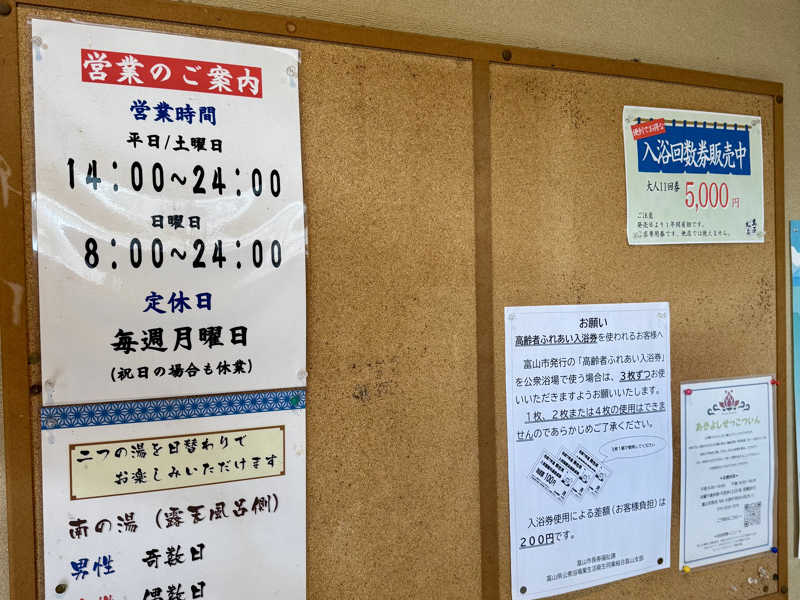 営業のご案内
営業時間
平日/土曜日
14:00~24:00
日曜日
8:00~24:00
定休日
毎週月曜日
(祝日の場合も休業)
二つの湯を日替わりで
お楽しみいただけます
南の湯(露天風呂側)
男性 奇数日
偶数日
便利でお得な
入浴回数券販売中
大人11回券 5,000円
ご注意
発売日より1年間有効です。
ご当専用券です。他店では使えません。
お願い
高齢者ふれあい入浴券を使われるお客様へ
富山市発行の「高齢者ふれあい入浴券」
を公衆浴場で使う場合は、3枚ずつお使
いいただきますようお願いいたします。
1枚、2枚または4枚の使用はできま
せんのであらかじめご了承ください。
100円
入浴券使用による差額(お客様負担)は
200円です。
富山市長寿福祉課
富山県公衆浴場業生活衛生同業組合富山支部
あきよしせっこついん